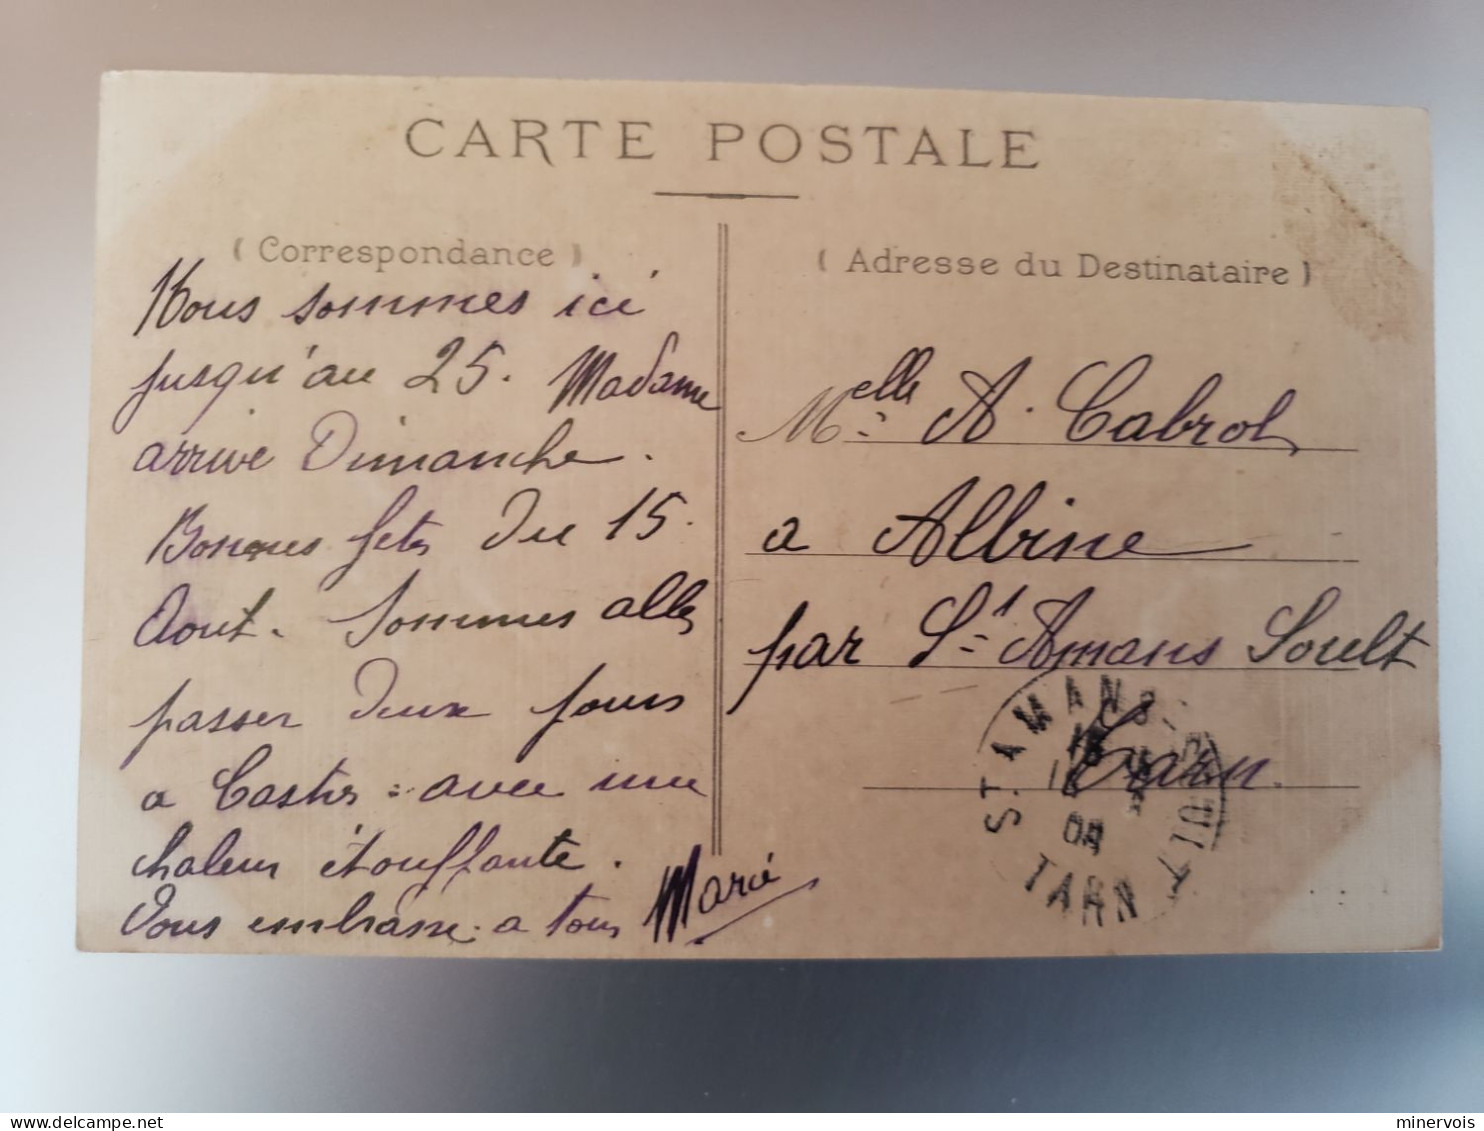 CARTE POSTALE
( Correspondance )
Nous sommes ici
jusqu'au 25. Madame
arrive Dimanche.
Bonnes fetes du 15
Aout. Sommes allés
passer deux jours
a Castres avec une
chaleur étouffante.
Vous embrasse a tous Marie
( Adresse du Destinataire )
Melle A. Cabrol
a Albine
par St Amans Soult
Tarn.
ST AMANS SOULT
TARN
minervois